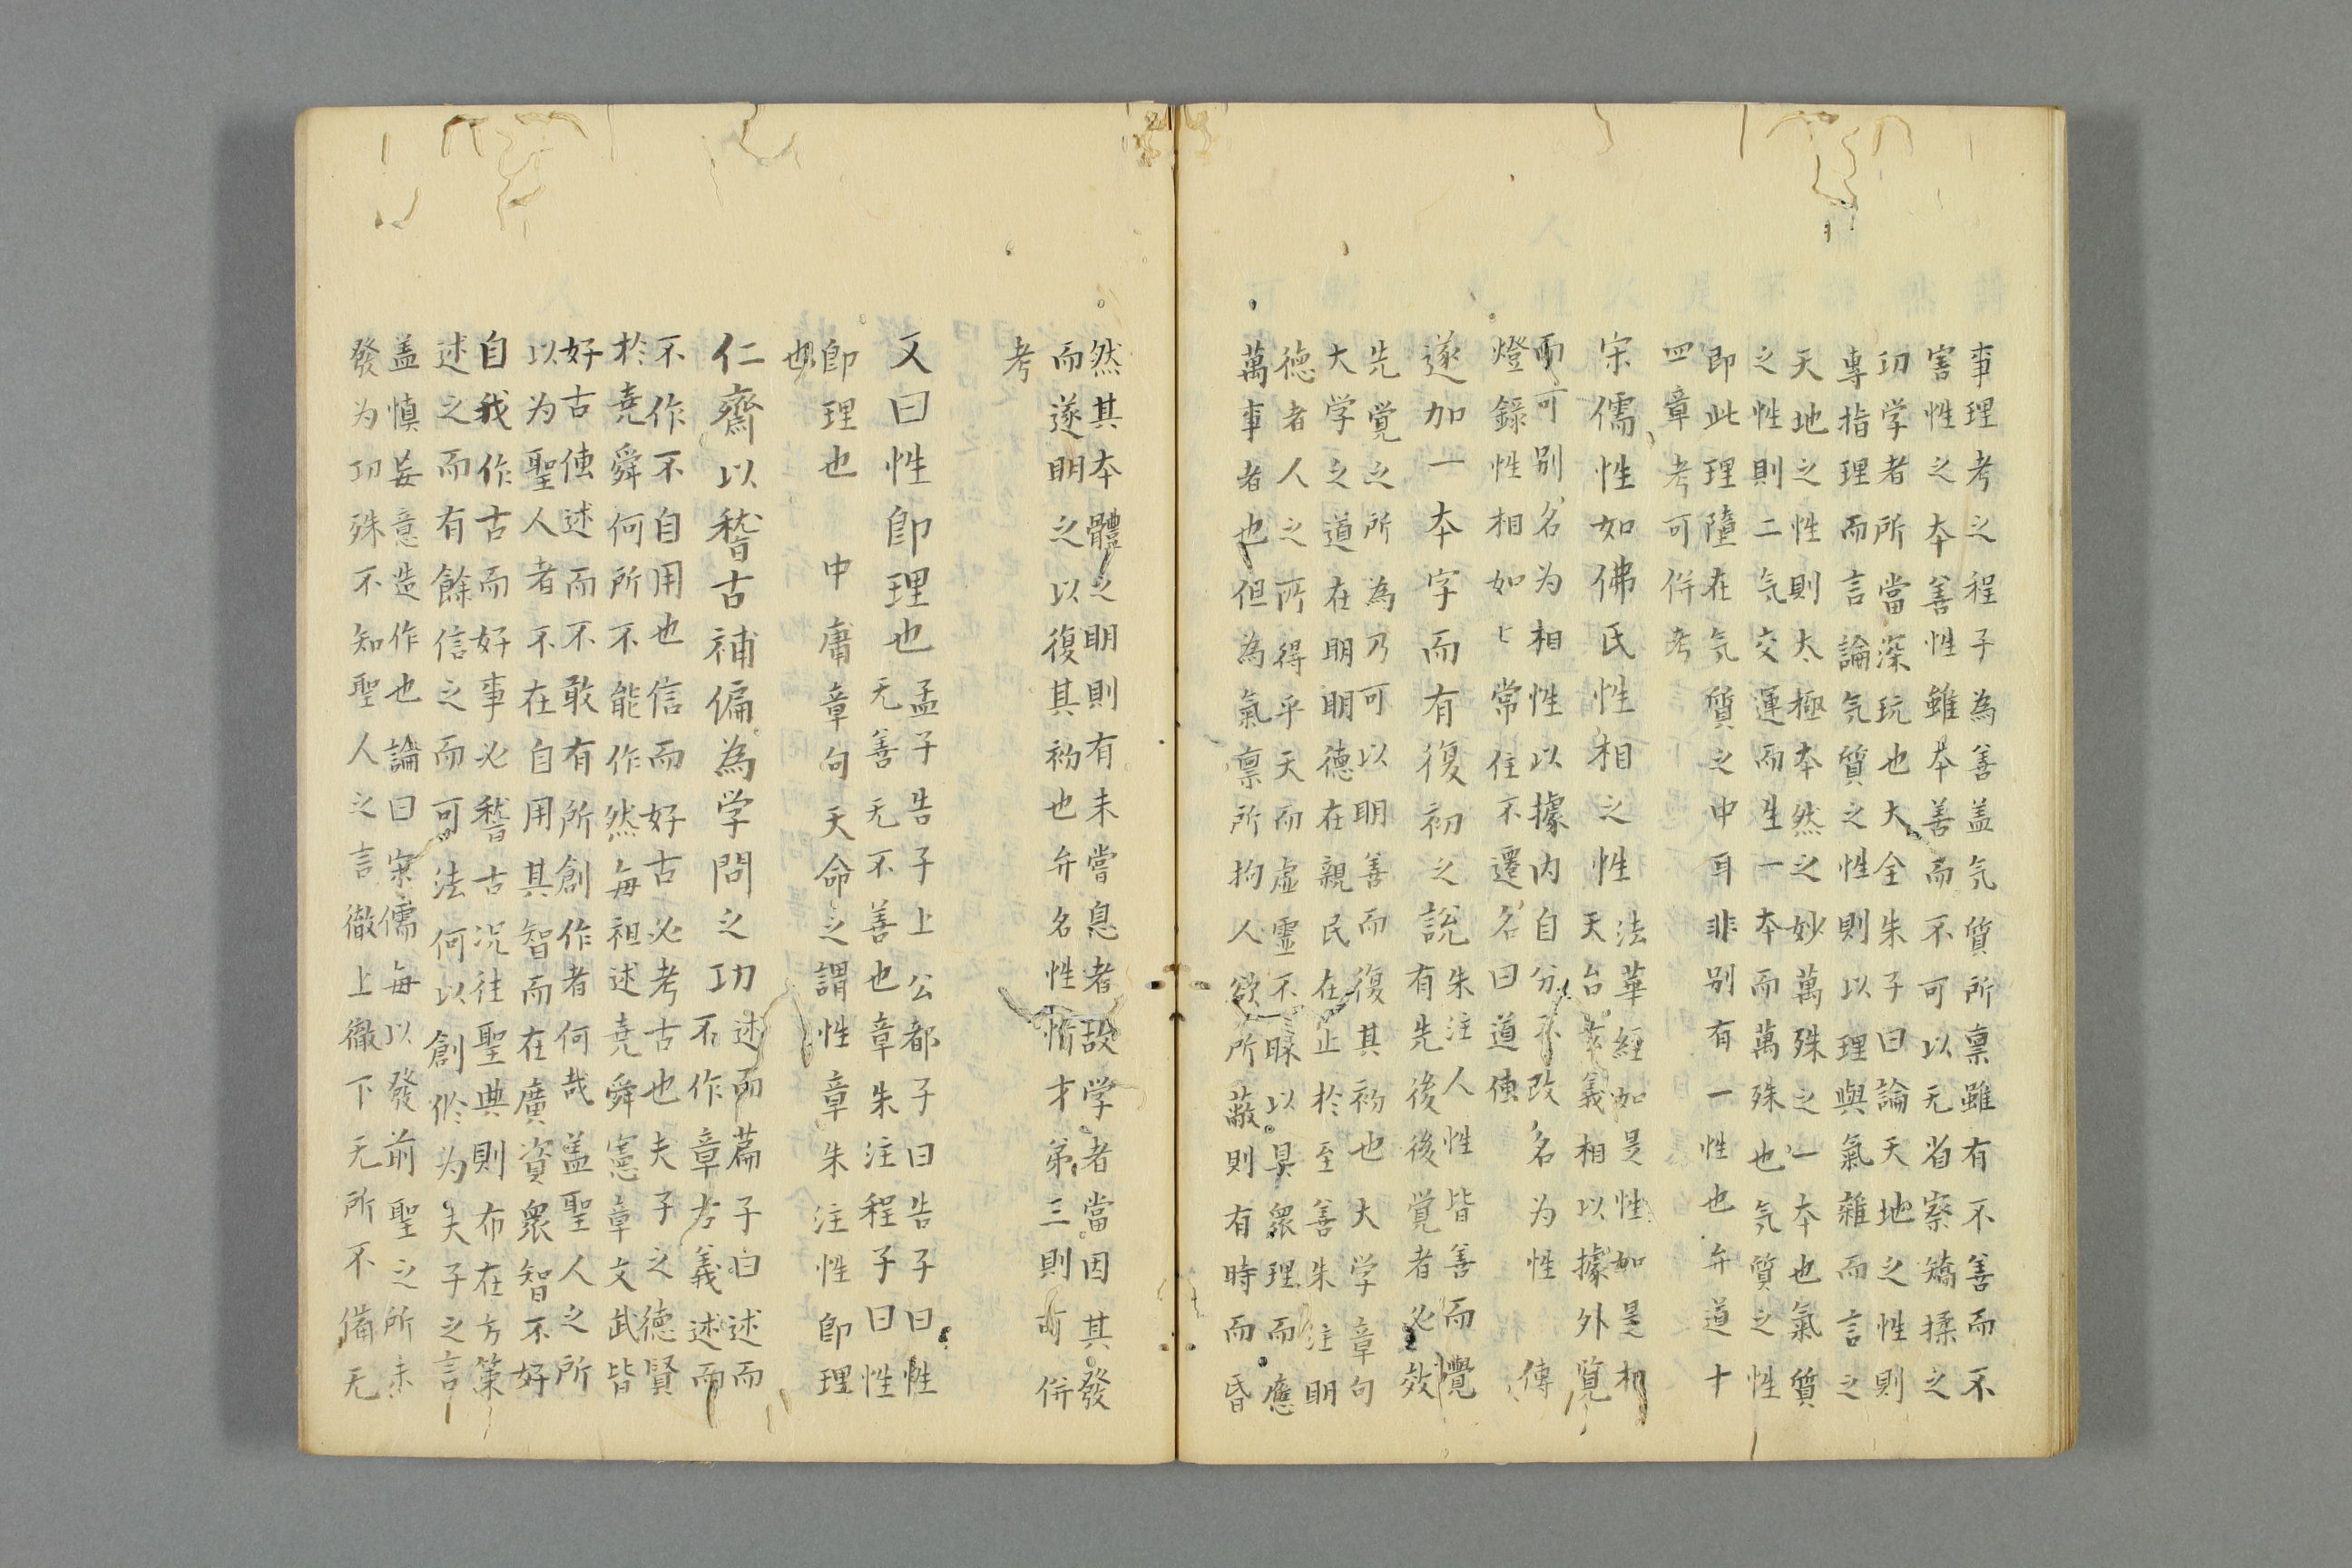 事理考之程子為善盖気質所禀雖有不善而不
害性之本善性雖本善而不可以无省察矯揉之
功学者所當深玩也大全朱子曰論天地之性則
專指理而言論気質之性則以理與氣雜而言之
天地之性則太極本然之妙萬殊之一本也氣質
之性則二気交運而生一本而萬殊也気質之性
即此理墮在気質之中耳非别有一性也弁道十
四章考可併考
宋儒性如佛氏性相之性
法華經如是性如是相
天台玄義相以據外覽
而可别名为相性以據内自分不改名为性 傳
燈錄性相如ヒ常住不遷名曰道傳
遂加一本字而有復初之說
朱注人性皆善而覺
有先後後覚者必效
先覚之所為乃可以明善而復其初也 大学章句
大学之道在明明德在親民在止於至善朱注明
德者人之所得乎天而虚霊不昧以具衆理而應
萬事者也但為氣禀所拘人欲所蔽則有時而昏
然其本體之明則有未嘗息者故学者當因其發
而遂明之以復其初也弁名性情才第三則可併
考
又曰性即理也
孟子告子上公都子曰告子曰性
无善无不善也章朱注程子曰性
即理也 中庸章句天命之謂性章朱注性即理
也
仁齋以稽古補偏為学問之功
述而篇子曰述而
不作章古義述而
不作不自用也信而好古必考古也夫子之德賢
於尭舜何所不能作然每祖述尭舜憲章文武皆
好古傳述而不敢有所創作者何哉盖聖人之所
以为聖人者不在自用其智而在廣資衆智不好
自我作古而好事必稽古况往聖典則布在方策
述之而有餘信之而可法何以創作为夫子之言
盖慎妄意造作也論曰宋儒每以發前聖之所未
發为功殊不知聖人之言徹上徹下无所不備无